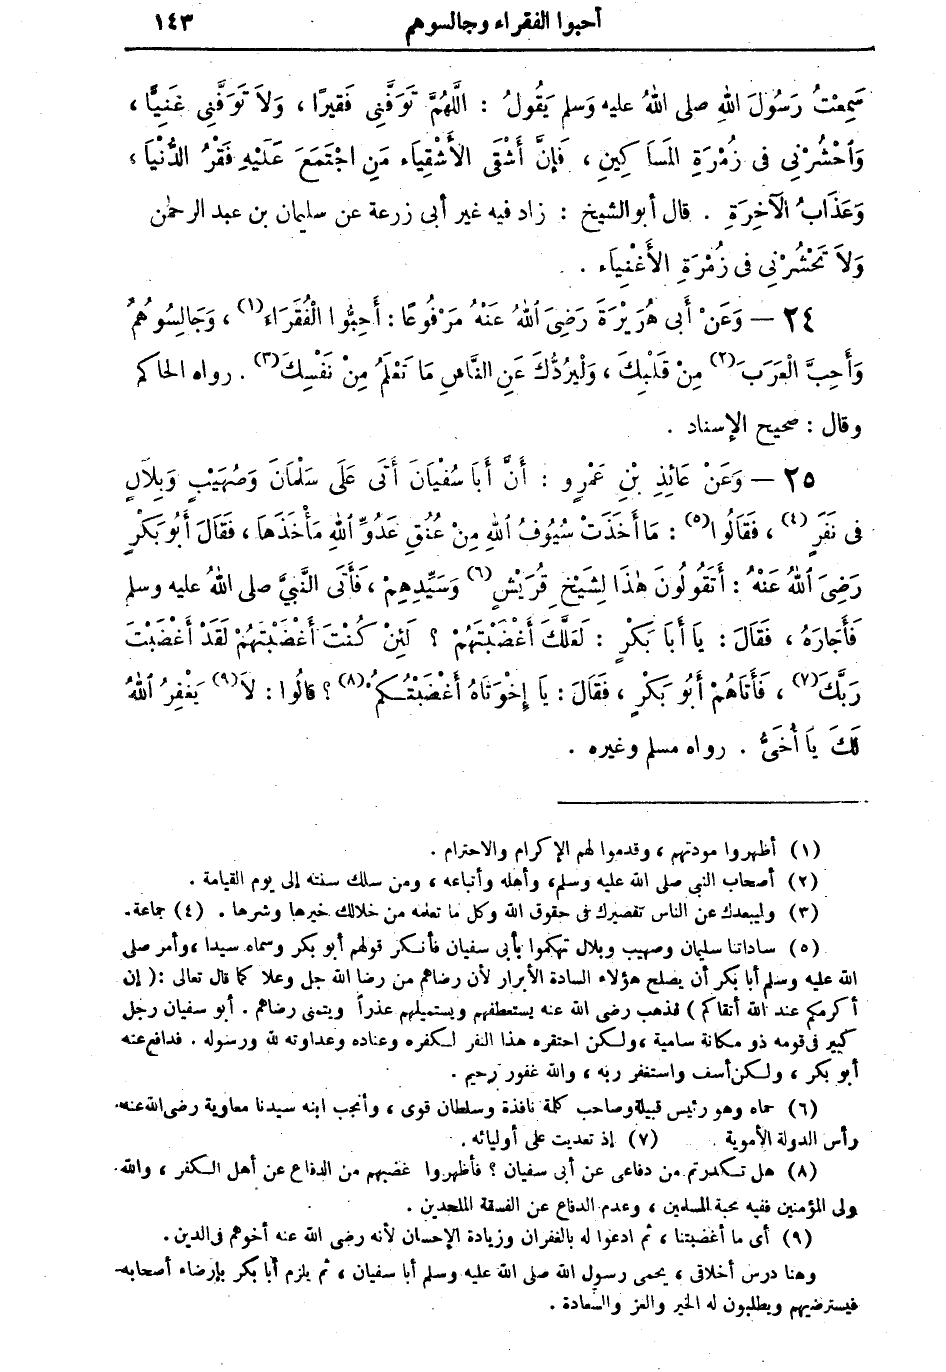 أحبوا الفقراء وجالسوهم ١٤٣
سَمِعْتُ رَسُولَ اللهِ صلى اللهُ عليه وَسلم يَقُولُ : اللَّهُمَّ تَوَفَّنِى فَقِيرًا ، وَلاَ تَوَفَّنِى غَنِيًّا ،
وَاحْشُرْنِى فى زُمْرَةِ المَسَاكِينِ ، فَإِنَّ أَشْقَى الأَشْقِيَاءِ مَنِ اجْتَمَعَ عَلَيْهِ فَقْرُ الدُّنْيَا ،
وَعَذَابُ الآخِرَةِ . قال أبو الشيخ : زاد فيه غير أبى زرعة عن سليمان بن عبد الرحمٰن
وَلاَ تَحْشُرْنِى فى زُمْرَةِ الأَغْنِيَاءِ .
٢٤ — وَعَنْ أَبى هُرَيْرَةَ رَضِىَ اللهُ عَنْهُ مَرْفُوعًا : أَحِبُّوا الْفُقَرَاءَ(١) ، وَجَالِسُوهُمْ
وَأَحِبَّ الْعَرَبَ(٢) مِنْ قَلْبِكَ ، وَلْيَرُدُّكَ عَنِ النَّاسِ مَا تَعْلَمُ مِنْ نَفْسِكَ(٣) . رواه الحاكم
وقال : صحيح الإسناد .
٢٥ — وَعَنْ عَائِذِ بْنِ عَمْرٍو : أَنَّ أَبَا سُفْيَانَ أَتَى عَلَى سَلْمَانَ وَصُهَيْبٍ وَبِلَالٍ
فى نَفَرٍ(٤) ، فَقَالُوا(٥) : مَا أَخَذَتْ سُيُوفُ اللهِ مِنْ عُنُقِ عَدُوِّ اللهِ مَأْخَذَهَا ، فَقَالَ أَبُو بَكْرٍ
رَضِىَ اللهُ عَنْهُ : أَتَقُولُونَ هٰذَا لِشَيْخِ قُرَيْشٍ(٦) وَسَيِّدِهِمْ ، فَأَتَى النَّبِيَّ صلى اللهُ عليه وسلم
فَأَجَارَهُ ، فَقَالَ : يَا أَبَا بَكْرٍ : لَعَلَّكَ أَغْضَبْتَهُمْ ؟ لَئِنْ كُنْتَ أَغْضَبْتَهُمْ لَقَدْ أَغْضَبْتَ
رَبَّكَ(٧) ، فَأَتَاهُمْ أَبُو بَكْرٍ ، فَقَالَ : يَا إِخْوَتَاهُ أَغْضَبْتُكُمْ(٨) ؟ قَالُوا : لاَ(٩) يَغْفِرُ اللهُ
لَكَ يَا أُخَىَّ . رواه مسلم وغيره .
(١) أظهروا مودتهم ، وقدموا لهم الإكرام والاحترام .
(٢) أصحاب النبى صلى الله عليه وسلم، وأهله وأتباعه ، ومن سلك سنته إلى يوم القيامة .
(٣) وليبعدك عن الناس تقصيرك فى حقوق الله وكل ما تعلمه من خلالك خيرها وشرها . (٤) جماعة.
(٥) ساداتنا سليمان وصهيب وبلال تهكموا بأبى سفيان فأنكر قولهم أبو بكر وسماه سيدا ، وأمر صلى
الله عليه وسلم أبا بكر أن يصلح هؤلاء السادة الأبرار لأن رضاهم من رضا الله جل وعلا كما قال تعالى : ( إن
أكرمكم عند الله أتقاكم ) فذهب رضى الله عنه يستعطفهم ويستميلهم عذراً ويتمنى رضاهم . أبو سفيان رجل
كبير فى قومه ذو مكانة سامية ، ولكن احتقره هذا النفر لكفره وعناده وعداوته لله ورسوله . فدافع عنه
أبو بكر ، ولكن أسف واستغفر ربه ، والله غفور رحيم .
(٦) حماه وهو رئيس قبيلة وصاحب كلمة نافذة وسلطان قوى ، وأنجب ابنه سيدنا معاوية رضى الله عنه
رأس الدولة الأموية . (٧) إذ تعديت على أوليائه .
(٨) هل تكدرتم من دفاعى عن أبى سفيان ؟ فأظهروا غضبهم من الدفاع عن أهل الكفر ، والله
ولى المؤمنين ففيه محبة المسلمين ، وعدم الدفاع عن الفسقة الملحدين .
(٩) أى ما أغضبتنا ، ثم ادعوا له بالغفران وزيادة الإحسان لأنه رضى الله عنه أخوهم فى الدين .
وهنا درس أخلاقى ، يحمى رسول الله صلى الله عليه وسلم أبا سفيان ، ثم يلزم أبا بكر بإرضاء أصحابه
فيسترضيهم ويطلبون له الخير والعز والسعادة .